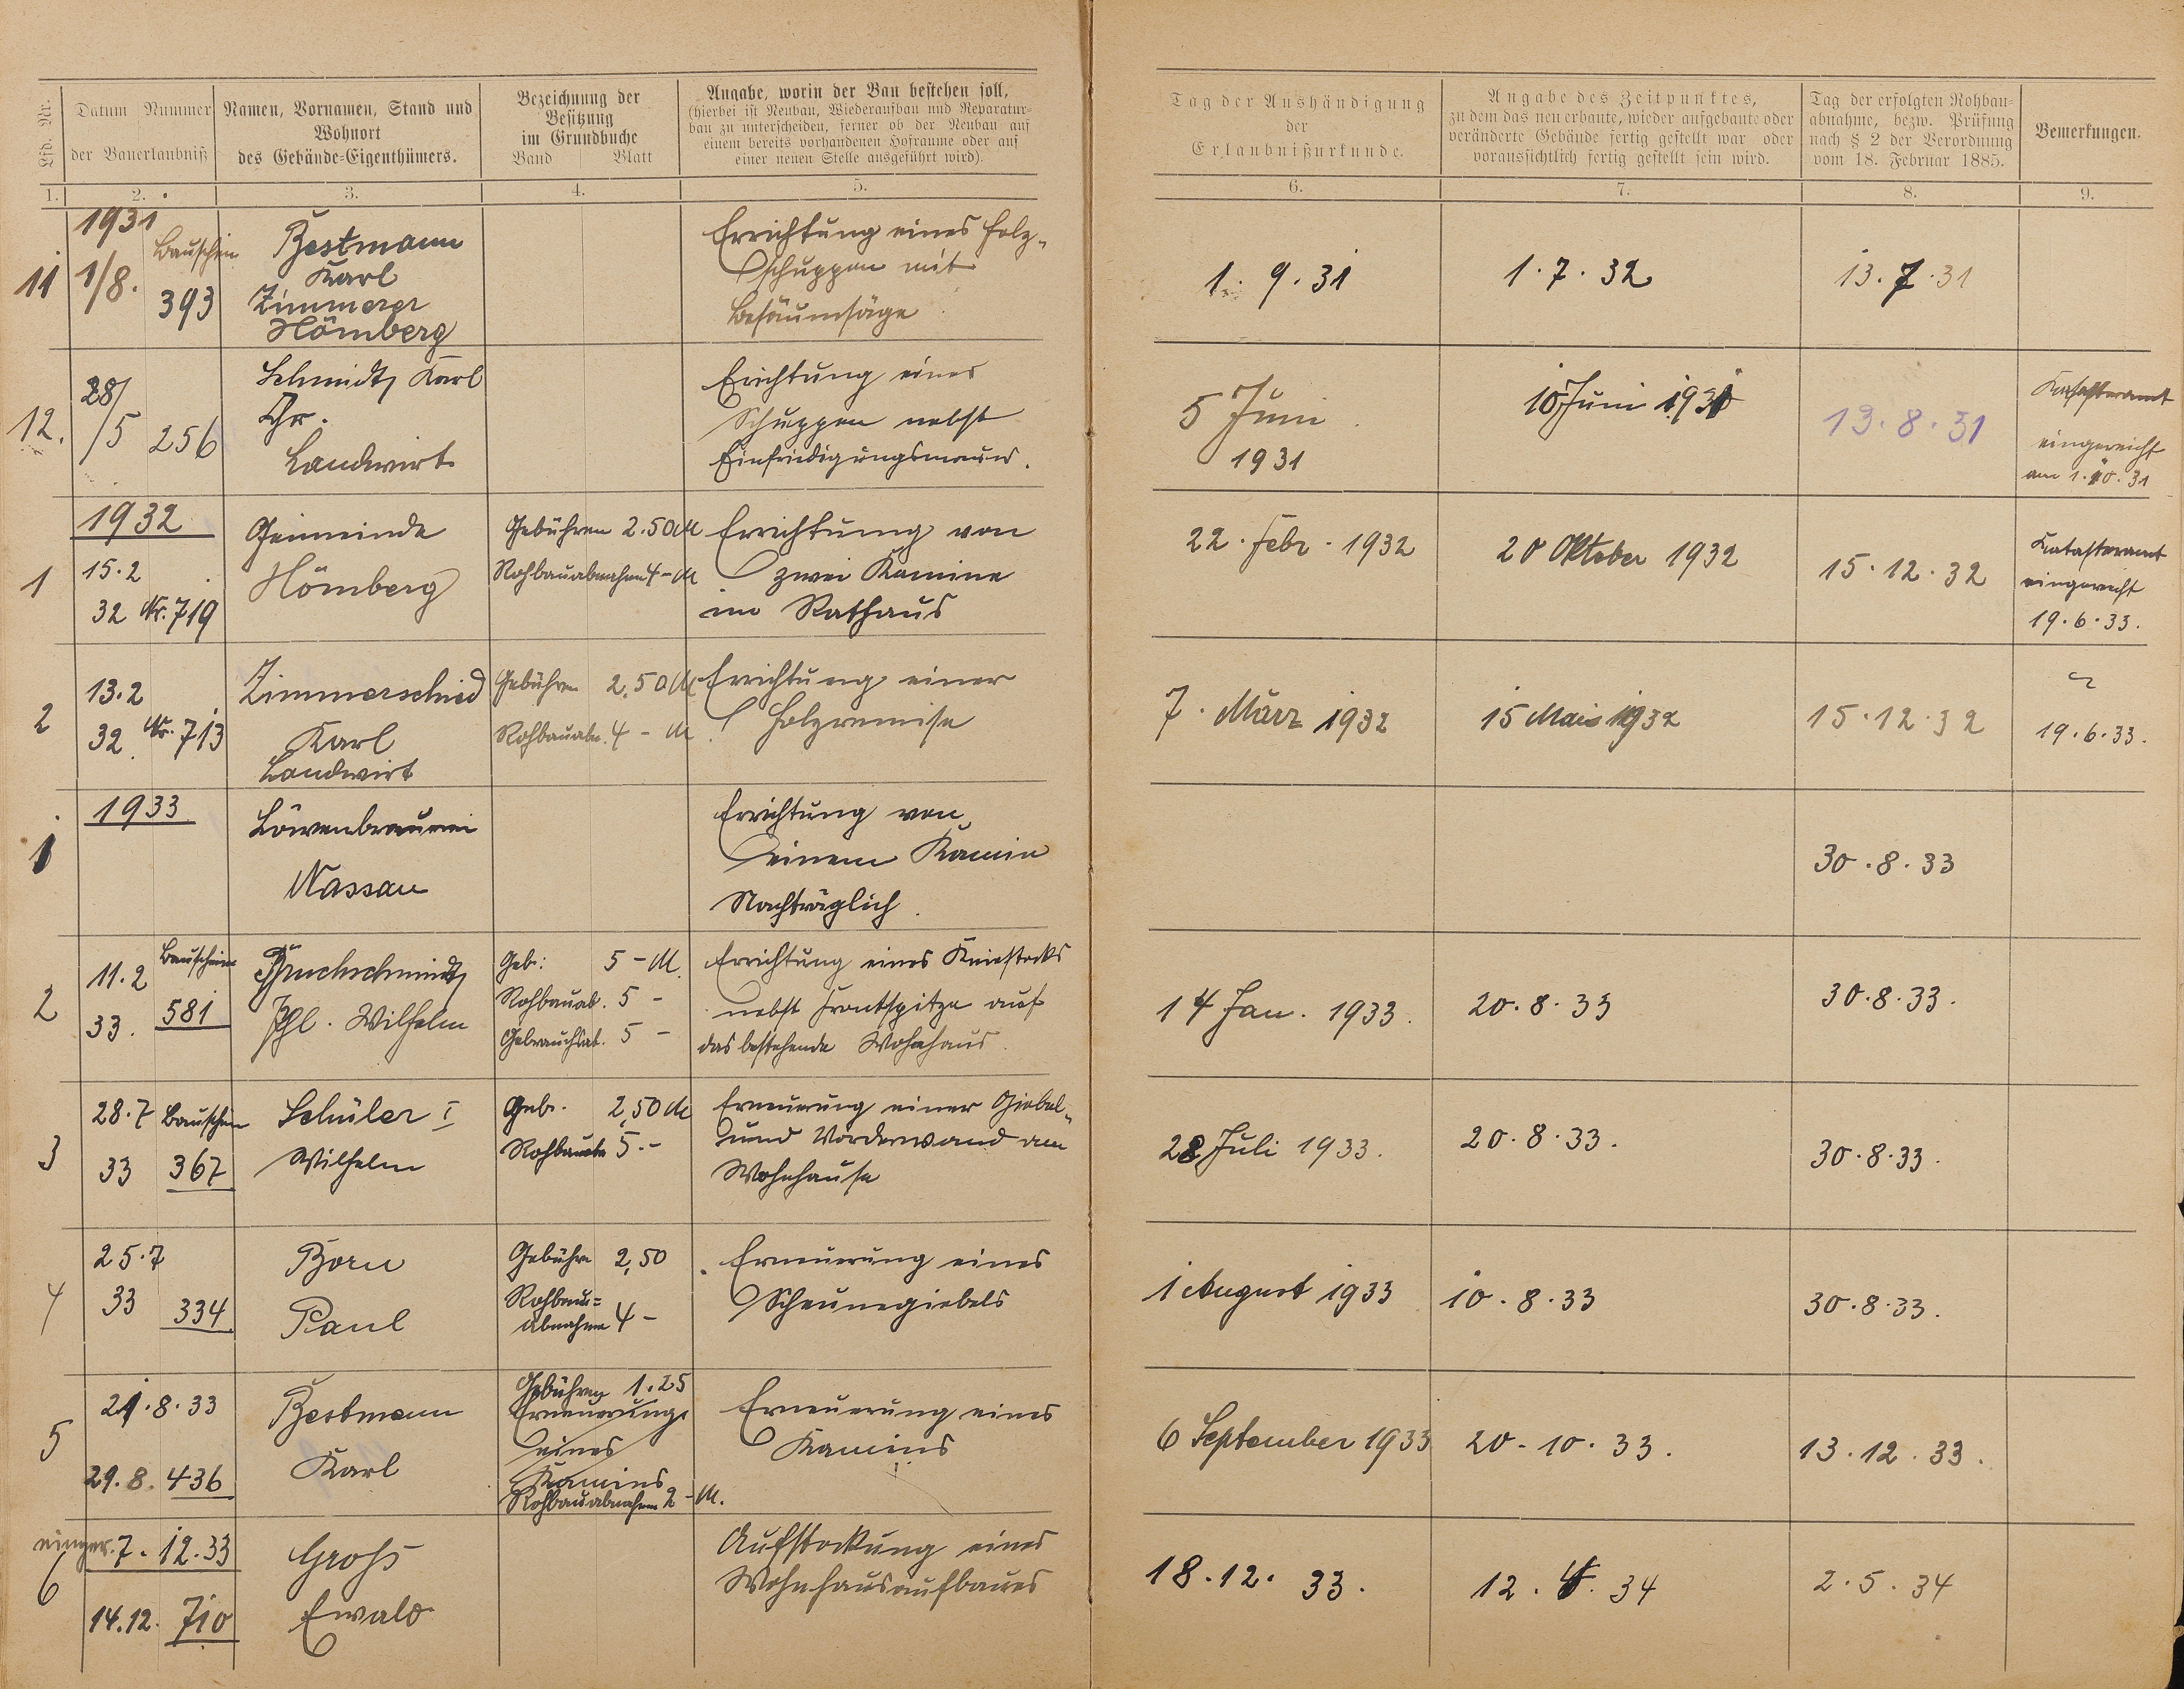 Lfd. Nr.
Datum Nummer
der Bauerlaubniß
Namen, Vornamen, Stand und
Wohnort
des Gebäude-Eigenthümers.
Bezeichnung der
Besitzung
im Grundbuche
Band Blatt
Angabe, worin der Bau bestehen soll,
(hierbei ist Neubau, Wiederaufbau und Reparatur-
bau zu unterscheiden, ferner ob der Neubau auf
einem bereits vorhandenen Hofraume oder auf
einer neuen Stelle ausgeführt wird).
Tag der Aushändigung
der
Erlaubnißurkunde.
Angabe des Zeitpunktes,
zu dem das neu erbaute, wieder aufgebaute oder
veränderte Gebäude fertig gestellt war oder
voraussichtlich fertig gestellt sein wird.
Tag der erfolgten Rohbau-
abnahme, bezw. Prüfung
nach § 2 der Verordnung
vom 18. Februar 1885.
Bemerkungen.
1. 2. 3. 4. 5. 6. 7. 8. 9.
11
1931
1/8.
Bauschein
393
Bestmann
Karl
Zimmerer
Hömberg
Errichtung eines Holz-
schuppen mit
Besäumsäge
1. 9. 31
1. 7. 32
13. 7. 31
12.
28/
/5 256
Schmidt, Karl
Chr.
Landwirt
Errichtung eines
Schuppen nebst
Einfriedigungsmauer.
5 Juni
1931
10 Juni 1931
13. 8. 31
Katasteramt
eingereicht
am 1.10.31
1932
1
15.2
32 Nr. 719
Gemeinde
Hömberg
Gebühren 2.50 M
Rohbauabnahme 4 - M
Errichtung von
zwei Kamine
im Rathaus
22. Febr. 1932
20 Oktober 1932
15.12.32
Katasteramt
eingereicht
19.6.33.
2
13.2
32. Nr. 713
Zimmerschied
Karl
Landwirt
Gebühren 2,50 M
Rohbauabn. 4 - M
Errichtung einer
Holzremise
7. März 1932
15 Mai 1932
15.12.32
19.6.33.
1933
1
Löwenbrauerei
Nassau
Errichtung von
einem Kamin
Nachträglich.
30.8.33
2
11.2
33.
Bauschein
581
Bruchschmidt,
Phl. Wilhelm
Geb: 5 - M.
Rohbauab. 5 -
Gebrauchsab. 5 -
Errichtung eines Kniestocks
nebst Frontspitze auf
das bestehende Wohnhaus.
14 Jan. 1933.
20.8.33
30.8.33.
3
28.7 Bauschein
33 367
Schüler I
Wilhelm
Geb. 2,50 M
5.-
Erneuerung einer Giebel-
und Vorderwand am
Wohnhause
28 Juli 1933.
20.8.33.
30.8.33.
4
25.7
33 334
Born
Paul
Gebühr 2,50
Rohbau=
abnahme 4 -
Erneuerung eines
Scheunegiebels
1 August 1933
10.8.33
30.8.33.
5
21.8.33
29.8. 436
Bestmann
Karl
Gebühren 1.25
Erneuerung
eines
Kamins
Rohbauabnahme 2 - M.
Erneuerung eines
Kamins
6 September 1933
20.10.33.
13.12.33.
6
einger. 7.12.33
14.12. 710
Groß
Ewald
Aufstockung eines
Wohnhausaufbaues
18.12. 33.
12. 4. 34
2.5.34